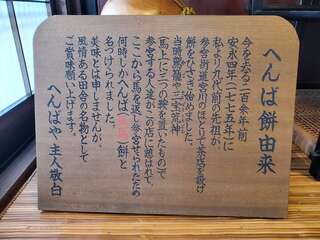 へんば餅由来
今を去る二百余年前
安永四年(一七七五年)に
私より九代前の先祖が
参宮街道宮川のほとりで茶店を設け
餅をひさぎ始めました。
当時駕籠や三宝荒神
(馬上に三つの鞍を置いたもの)で
参宮する人達がこの店に憩はれ、
ここから馬を返し参宮せられたため
何時しかへんば(返馬)餅と
名づけられました。
美味とは申しませんが、
風情ある田舎の名物として
ご賞味願い上げます。
へんばや主人敬白